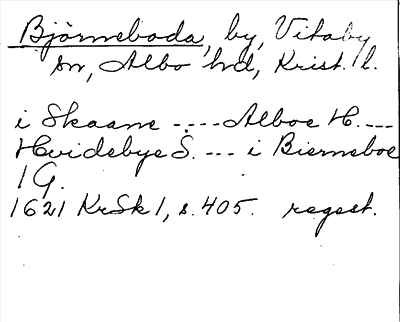 Björneboda, by, Vitaby
sn, Albo hd, Krist. l.
i Skaane ---- Alboe H. ---
Hvidebye S. --- i Bierneboe
1 G.
1621 KrSk 1, s. 405. regest.